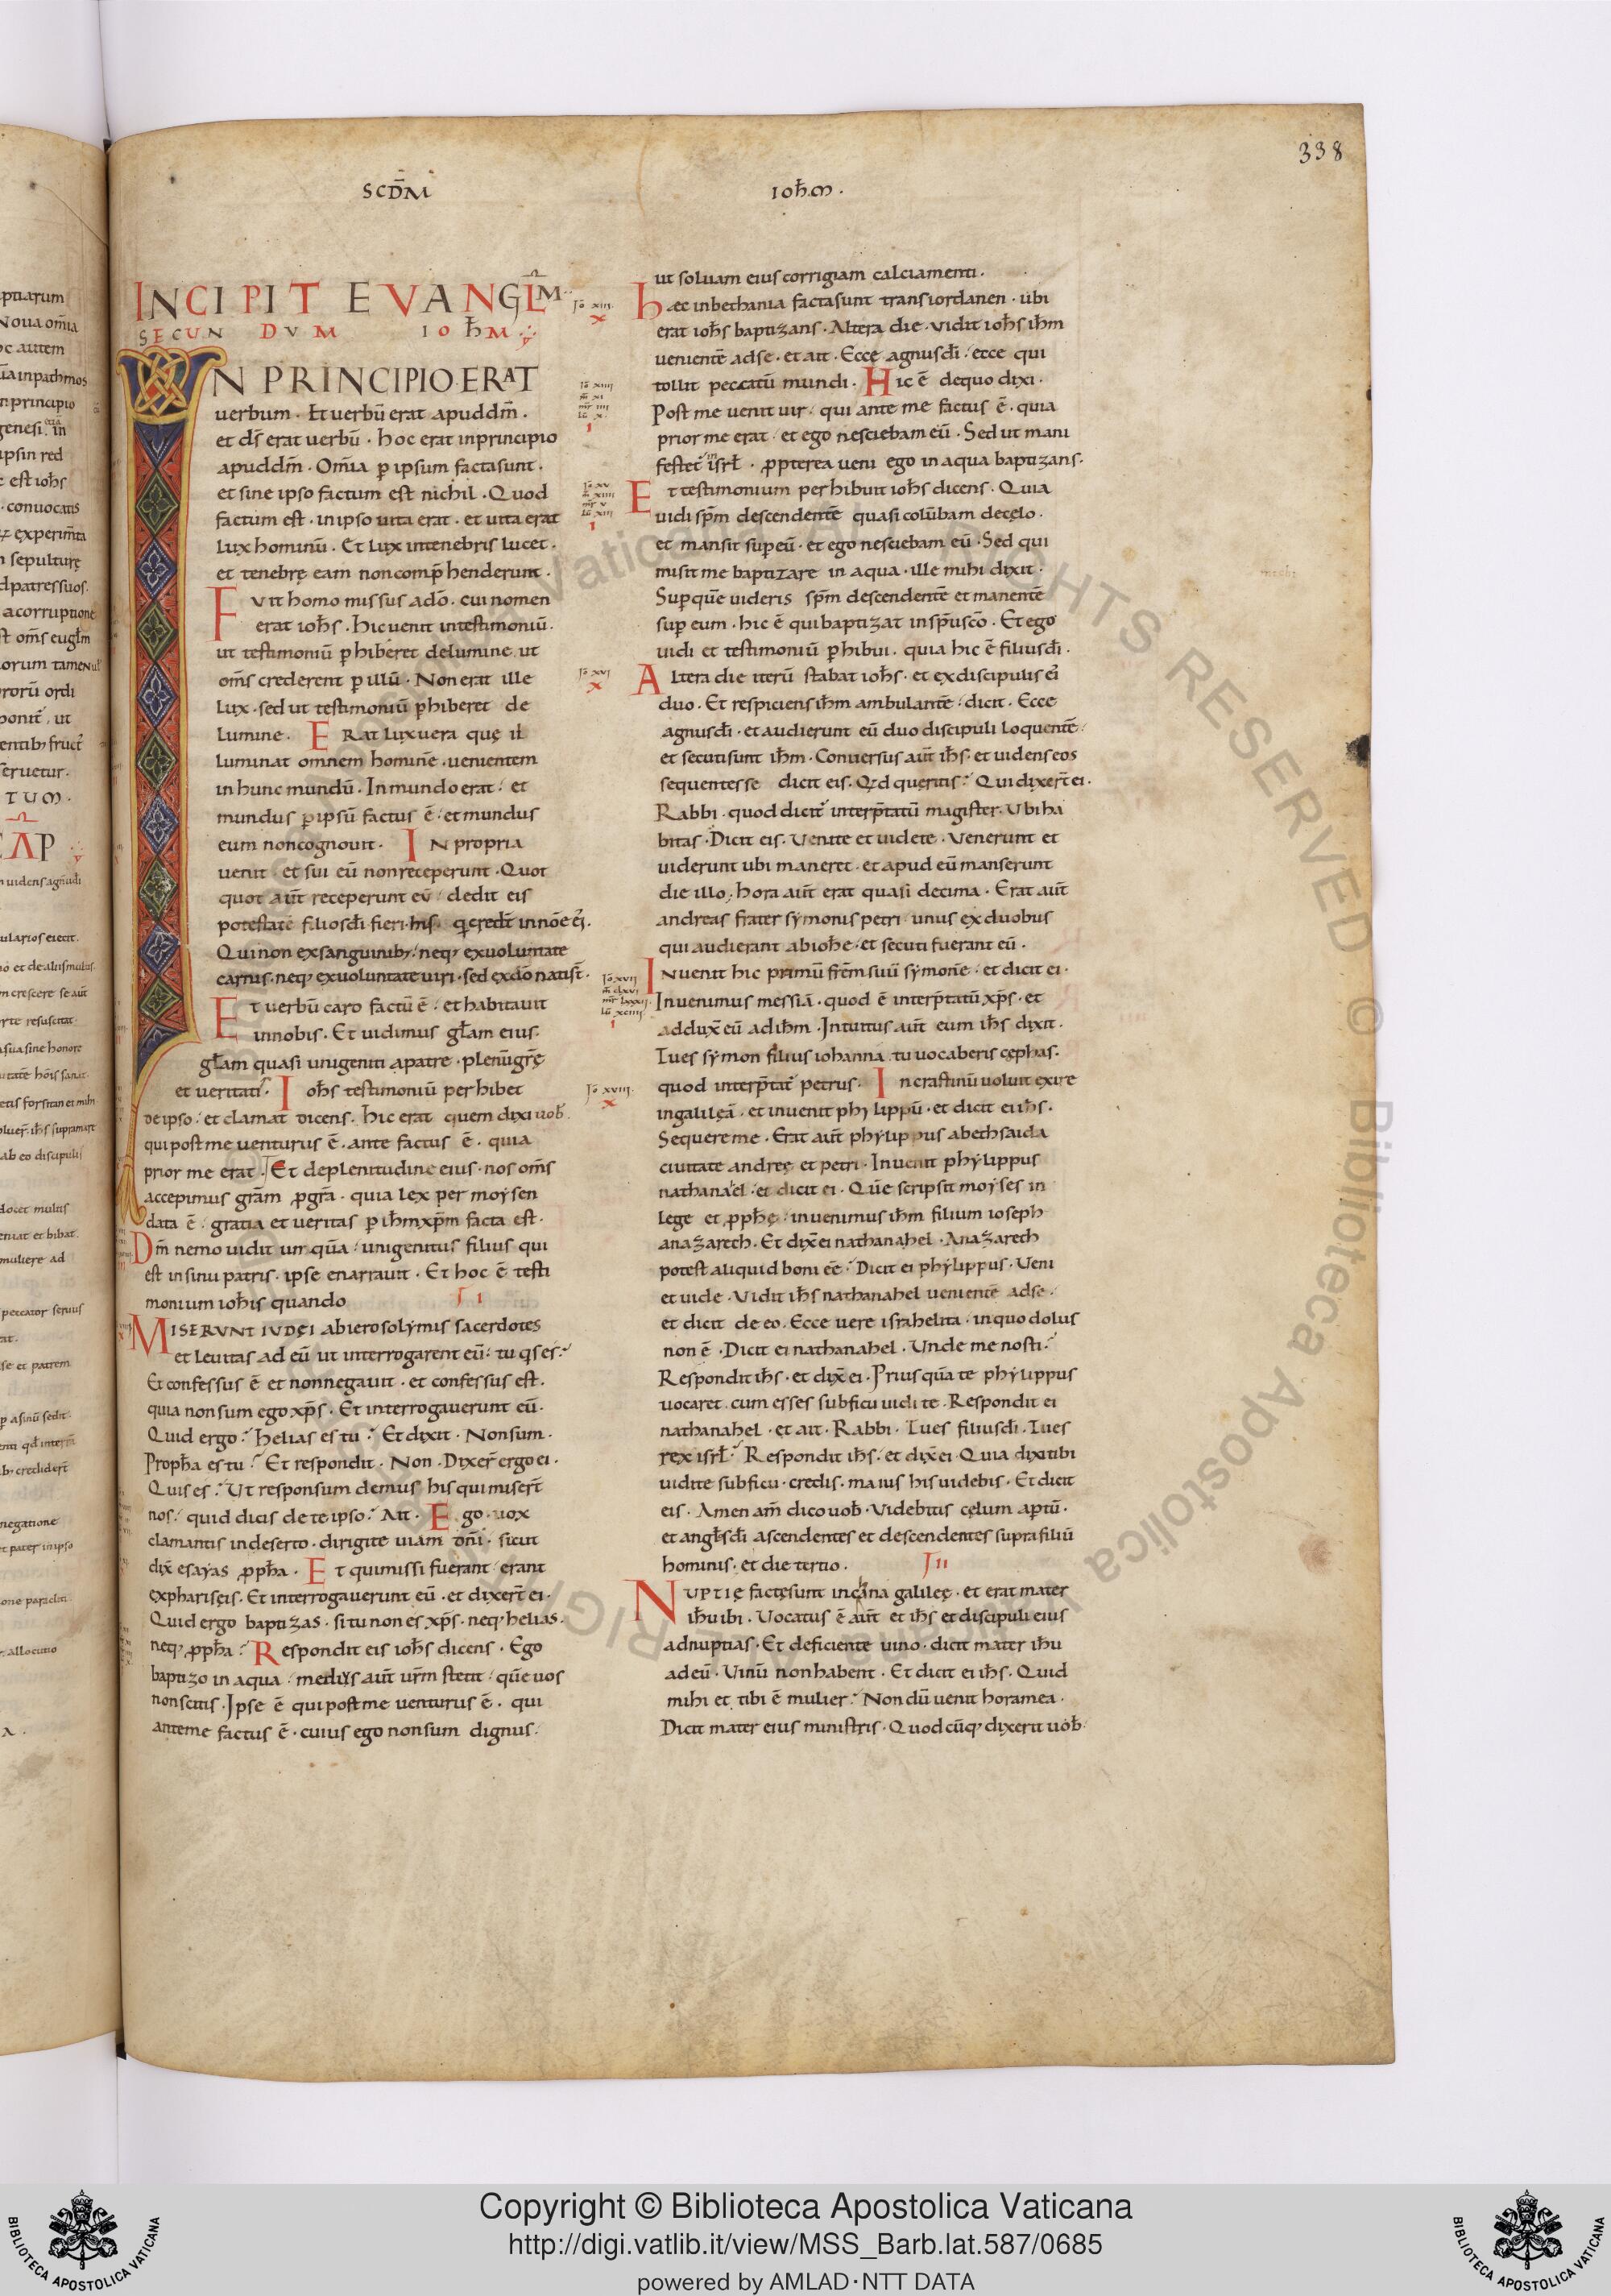 338
SCDM̄
IOĦM ·
INCIPIT EVANGL̄M
SECUNDVM IOĦM
IN PRINCIPIO·ERAT
uerbum · Et uerbū erat apud dm̄ ·
et ds̄ erat uerbū · hoc erat inprincipio
apud dm̄ · Om̄ia ꝑ ipsum factasunt ·
et sine ipso factum est nichil · Quod
factum est · inipso uita erat · et uita erat
lux hominū · Et lux intenebris lucet ·
et tenebrę eam noncomp̄henderunt ·
Fvit homo missus adō · cui nomen
erat ioħs · hic uenit intestimoniū ·
ut testimoniū ꝑhiberet delumine ut
om̄s crederent ꝑ illū · Non erat ille
lux · sed ut testimoniū ꝑhiberet de
lumine · ERat lux uera quę il
luminat omnem hominē · uenientem
in hunc mundū · In mundo erat · et
mundus ꝑ ipsū factus ē · et mundus
eum noncognouit · IN propria
uenit · et sui eū nonreceperunt · Quot
quot aūt receperunt eū · dedit eis
potestatē filiosdī fieri · his q credt̄ in nōe ei᷒ ·
Qui non ex sanguinib; · neq; exuoluntate
carnis · neq; exuoluntate uiri · sed exdō natist̄ ·
Et uerbū caro factū ē · et habitauit
innobis · Et uidimus gl̄am eius
gl̄am quasi unigeniti apatre · plenūgr̄ę
et ueritati᷒ Ioħs testimoniū perhibet
de ipso · et clamat dicens · hic erat quem dixi uob̄ ·
qui post me uenturus ē · ante factus ē · quia
prior me erat · Et deplenitudine eius · nos om̄s
accepimus gr̄am ꝓgr̄a · quia lex per moysen
data ē · gratia et ueritas ꝑ iħm xp̄m facta est ·
Dm̄ nemo uidit unqūa · unigenitus filius qui
est in sinu patris · ipse enarrauit · Et hoc ē testi
monium ioħis quando I
MISERVNT IVDĘI abierosolymis sacerdotes
et leuitas ad eū ut interrogarent eū · tu qs es?
Et confessus ē et nonnegauit · et confessus est ·
quia non sum ego xp̄s · Et interrogauerunt eū ·
Quid ergo? helias es tu? Et dixit · Nonsum ·
Proph̄a es tu? Et respondit · Non · Dixer̄ ergo ei ·
Quis es? Ut responsum demus his qui misert̄
nos · quid dicis de te ipso? Ait · Ego uox
clamantis indeserto · dirigite uiam dn̄i · sicut
dix̄ esayas ꝓph̄a · Et qui missi fuerant erant
expharisęis · Et interrogauerunt eū · et dixert̄ ei ·
Quid ergo baptizas · si tu non es xp̄s · neq; helias ·
neq; ꝓph̄a? Respondit eis ioħs dicens · Ego
baptizo in aqua · medius aūt ur̄m stetit · quē uos
nonscitis · Ipse ē qui post me uenturus ē · qui
anteme factus ē · cuius ego nonsum dignus ·
ut soluam eius corrigiam calciamenti ·
hæc inbethania factasunt transiordanen · ubi
erat ioħs baptizans · Altera die · uidit ioħs iħm
uenientē adse · et ait · Ecce agnusdī · ecce qui
tollit peccatū mundi · Hic ē dequo dixi ·
Post me uenit uir · qui ante me factus ē · quia
prior me erat · et ego nesciebam eū · Sed ut mani
festet᷑ in isrl̄ · ꝓpterea ueni ego in aqua baptizans ·
Et testimonium perhibuit ioħs dicens · Quia
uidi sp̄m descendentē quasi colūbam decęlo ·
et mansit supeū · et ego nesciebam eū · Sed qui
misit me baptizare in aqua · ille mihi dixit ·
Supquē uideris sp̄m descendentē et manentē
sup eum · hic ē qui baptizat in sp̄uscō · Et ego
uidi et testimoniū ꝑhibui · quia hic ē filiusdī ·
Altera die iterū stabat ioħs · et ex discipulis ei᷒
duo · Et respiciens iħm ambulantē · dicit · Ecce
agnusdī · et audierunt eū duo discipuli loquentē ·
et secutisunt iħm · Conuersus aūt iħs · et uidens eos
sequentes se dicit eis · Qd queritis? Qui dixert̄ ei ·
Rabbi · quod dicit᷑ interp̄tatū magister · Ubi ha
bitas · Dicit eis · Uenite et uidete · Uenerunt et
uiderunt ubi maneret · et apud eū manserunt
die illo · hora aūt erat quasi decima · Erat aūt
andreas frater symonis petri unus ex duobus
qui audierant abioħe · et secuti fuerant eū ·
Inuenit hic primū fr̄em suū symonē · et dicit ei ·
Inuenimus messiā · quod ē interp̄tatū xp̄s · et
addux̄ eū adiħm · Intuitus aūt eum iħs dixit ·
Tu es symon filius iohanna tu uocaberis cęphas ·
quod interp̄tat᷑ petrus · In crastinū uoluit exire
ingalileā · et inuenit phylippū · et dicit ei iħs ·
Sequere me · Erat aūt phylippus abethsaida
ciuitate andreę et petri · Inuenit phylippus
nathanael · et dicit ei · Quē scripsit moyses in
lege et ꝓph̄ę · inuenimus iħm filium ioseph
anazareth · Et dix̄ ei nathanahel · Anazareth
potest aliquid boni ēe? Dicit ei phylippus · Ueni
et uide · Uidit iħs nathanahel uenientē adse ·
et dicit de eo · Ecce uere israhelita · inquo dolus
non ē · Dicit ei nathanahel · Unde me nosti?
Respondit iħs · et dix̄ ei · Prius qūa te phylippus
uocaret · cum esses subficu uidi te · Respondit ei
nathanahel · et ait · Rabbi · Tu es filiusdī · Tu es
rex isrl̄ · Respondit iħs · et dix̄ ei · Quia dixi tibi
uidi te subficu · credis · maius his uidebis · Et dicit
eis · Amen am̄ dico uob̄ · Videbitis cęlum aptū ·
et angl̄sdī ascendentes et descendentes supra filiū
hominis · et die tertio · II
NUPTIĘ factęsunt in chana galileę · et erat mater
iħu ibi · Uocatus ē aūt et iħs et discipuli eius
adnuptias · Et deficiente uino · dicit mater iħu
ad eū · Uinū non habent · Et dicit ei iħs · Quid
mihi et tibi ē mulier? Nondū uenit horamea ·
Dicit mater eius ministris · Quod cūq; dixerit uob̄ ·
Copyright © Biblioteca Apostolica Vaticana
http://digi.vatlib.it/view/MSS_Barb.lat.587/0685
powered by AMLAD·NTT DATA
BIBLIOTECA APOSTOLICA VATICANA
BIBLIOTECA APOSTOLICA VATICANA